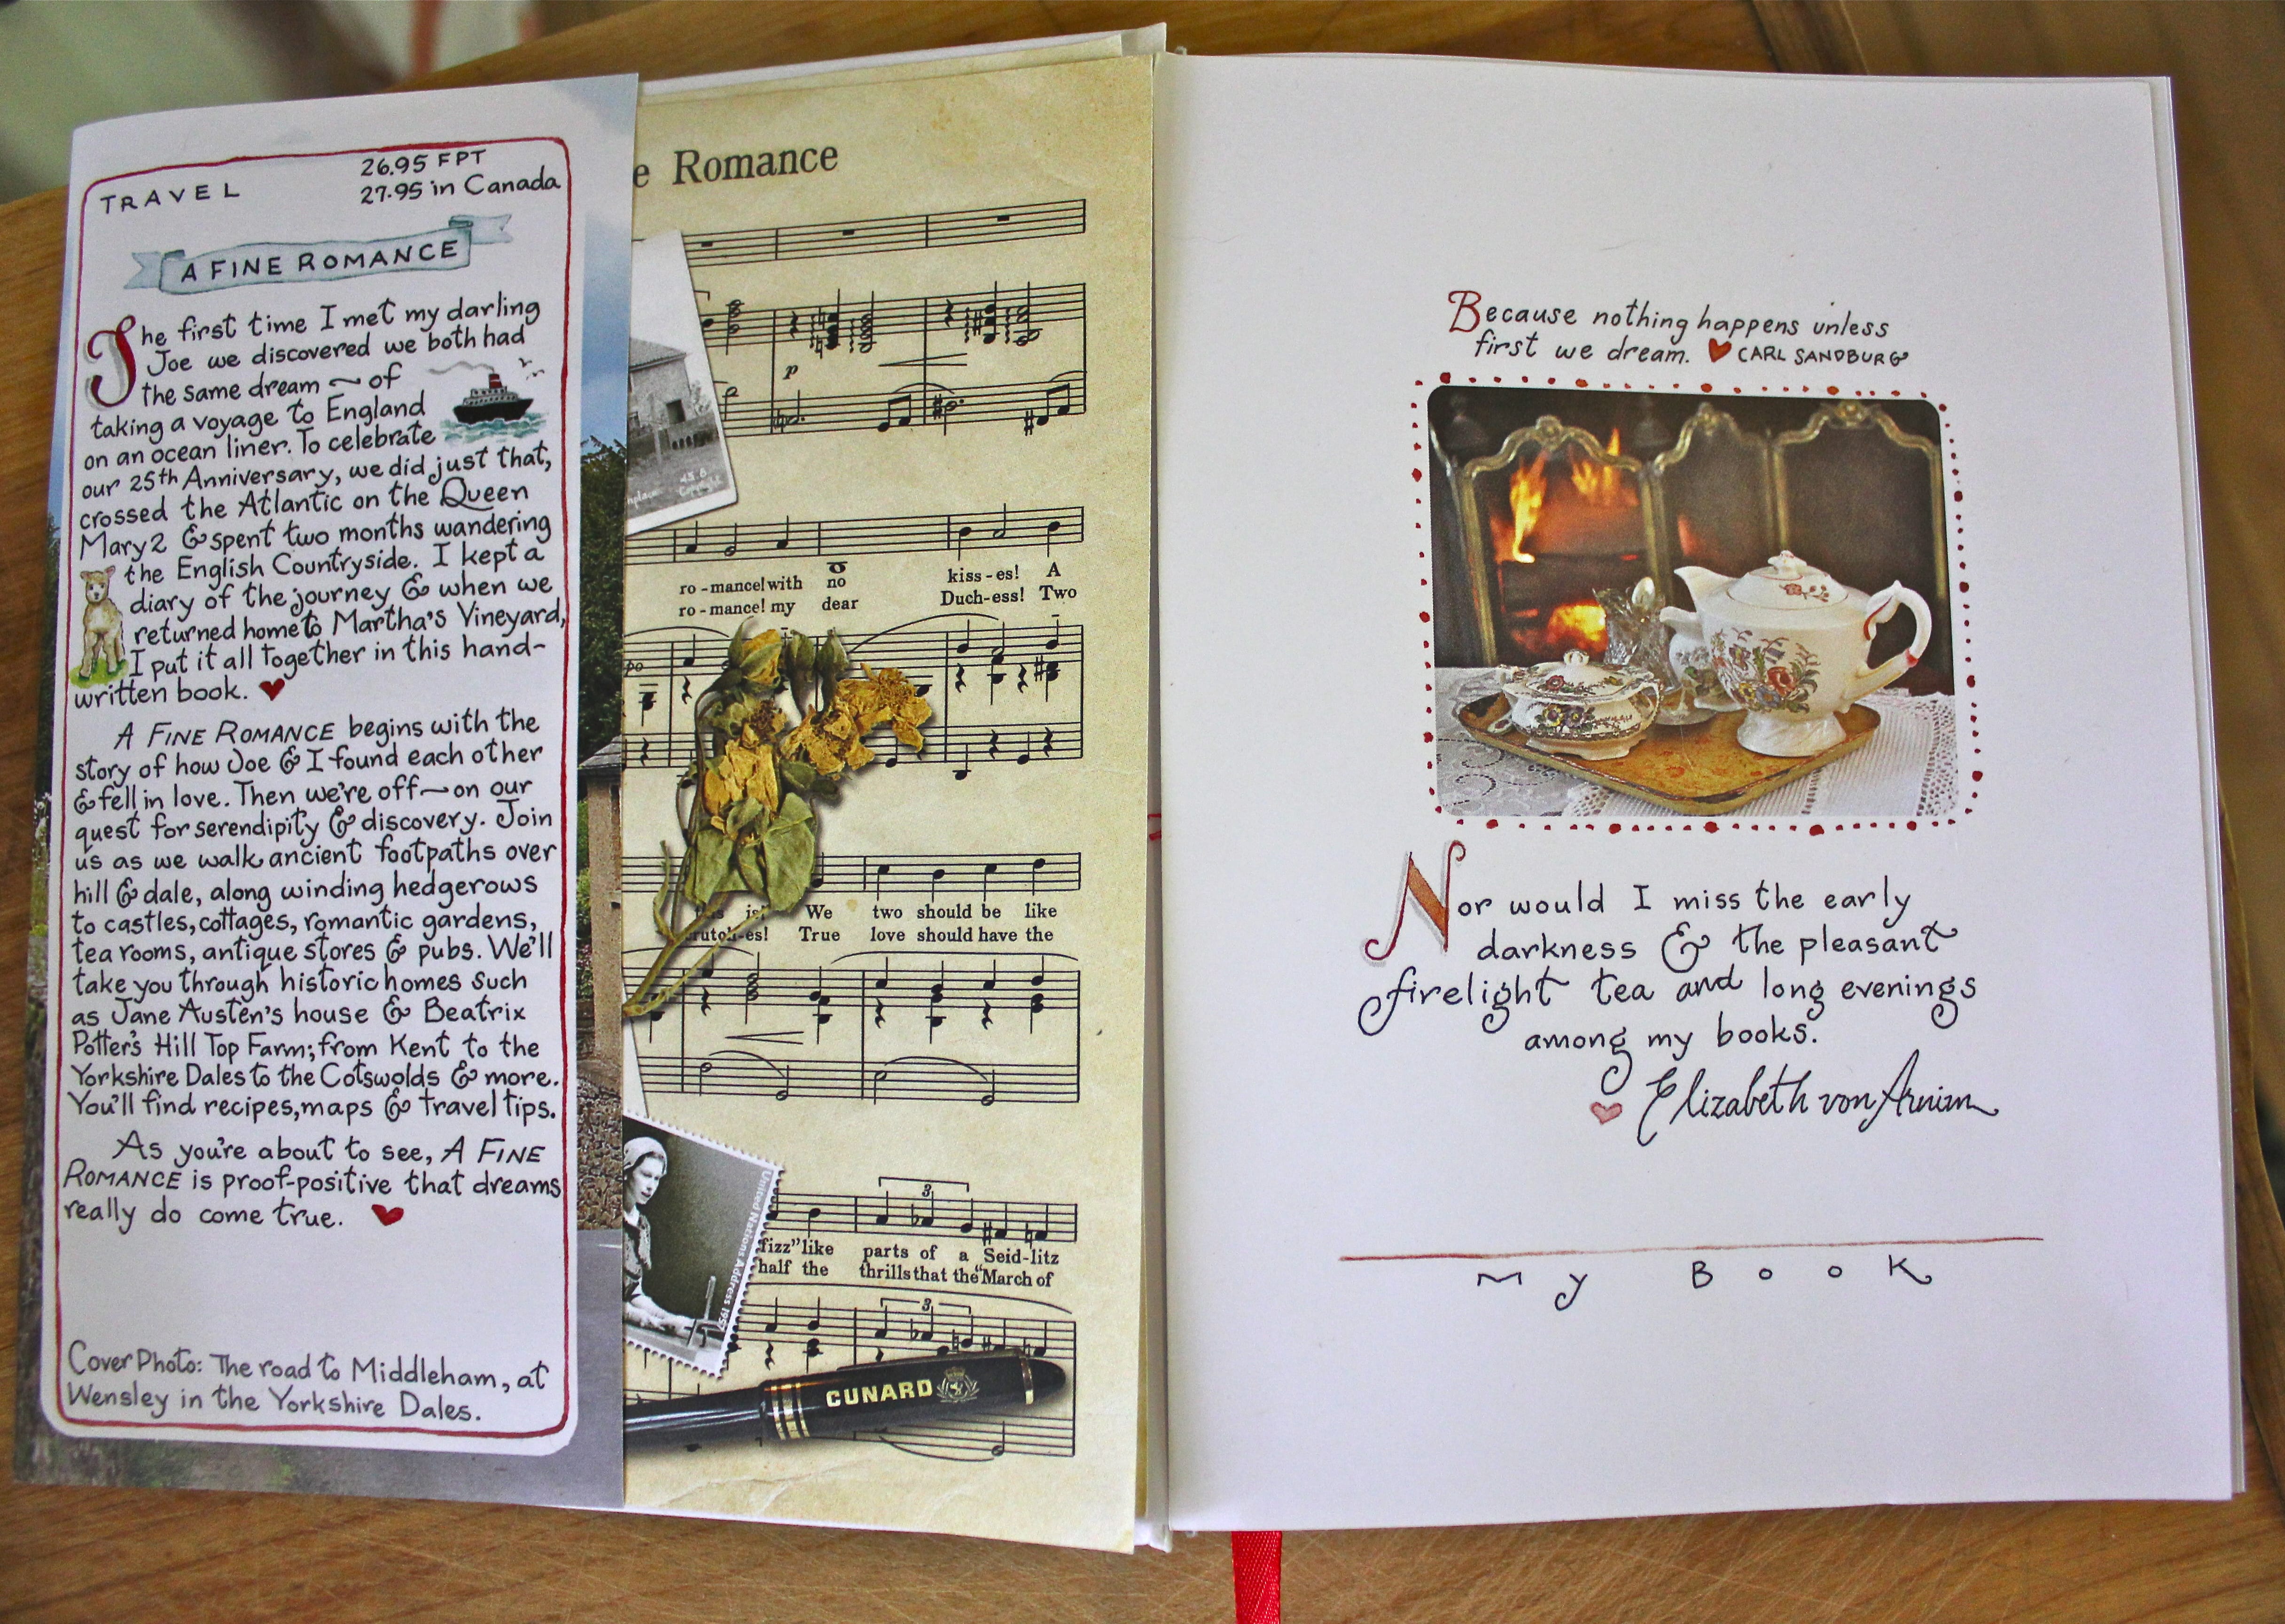 TRAVEL
26.95 FPT
27.95 in Canada
A FINE ROMANCE
The first time I met my darling
Joe we discovered we both had
the same dream ~ of
taking a voyage to England
on an ocean liner. To celebrate
our 25th Anniversary, we did just that,
crossed the Atlantic on the Queen
Mary 2 & spent two months wandering
the English Countryside. I kept a
diary of the journey & when we
returned home to Martha's Vineyard,
I put it all together in this hand-
written book. ♥
A FINE ROMANCE begins with the
story of how Joe & I found each other
& fell in love. Then we're off ~ on our
quest for serendipity & discovery. Join
us as we walk ancient footpaths over
hill & dale, along winding hedgerows
to castles, cottages, romantic gardens,
tea rooms, antique stores & pubs. We'll
take you through historic homes such
as Jane Austen's house & Beatrix
Potter's Hill Top Farm; from Kent to the
Yorkshire Dales to the Cotswolds & more.
You'll find recipes, maps & travel tips.
As you're about to see, A FINE
ROMANCE is proof-positive that dreams
really do come true. ♥
Cover Photo: The road to Middleham, at
Wensley in the Yorkshire Dales.
e Romance
p
ro - mance! with no kiss - es! A
ro - mance! my dear Duch-ess! Two
po
is! We two should be like
utch-es! True love should have the
3
fizz" like parts of a Seid-litz
half the thrills that the "March of
3
United Nations Address 1957
CUNARD
Because nothing happens unless
first we dream. ♥ CARL SANDBURG
Nor would I miss the early
darkness & the pleasant
firelight tea and long evenings
among my books.
♥ Elizabeth von Arnim
My Book